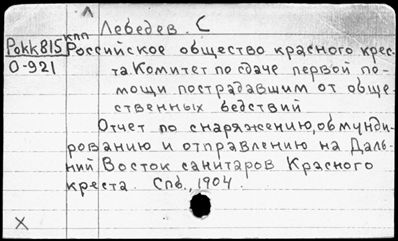 Лебедев. С
кпп
Рокк815
О-921
Российское общество красного крес-
та Комитет по сдаче первой по-
мощи пострадавшим от обще-
ственных бедствий
Отчет по снаряжению, обмунди-
рованию и отправлению на Даль-
ний Восток санитаров Красного
креста. Спб., 1904.
X